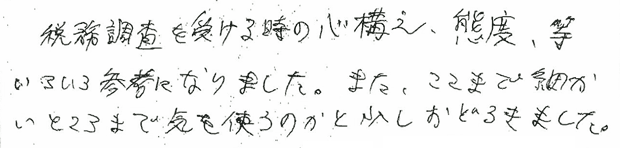 税務調査を受ける時の心構え、態度、等
いろいろ参考になりました。また、ここまで細か
いところまで気を使うのかと少しおどろきました。